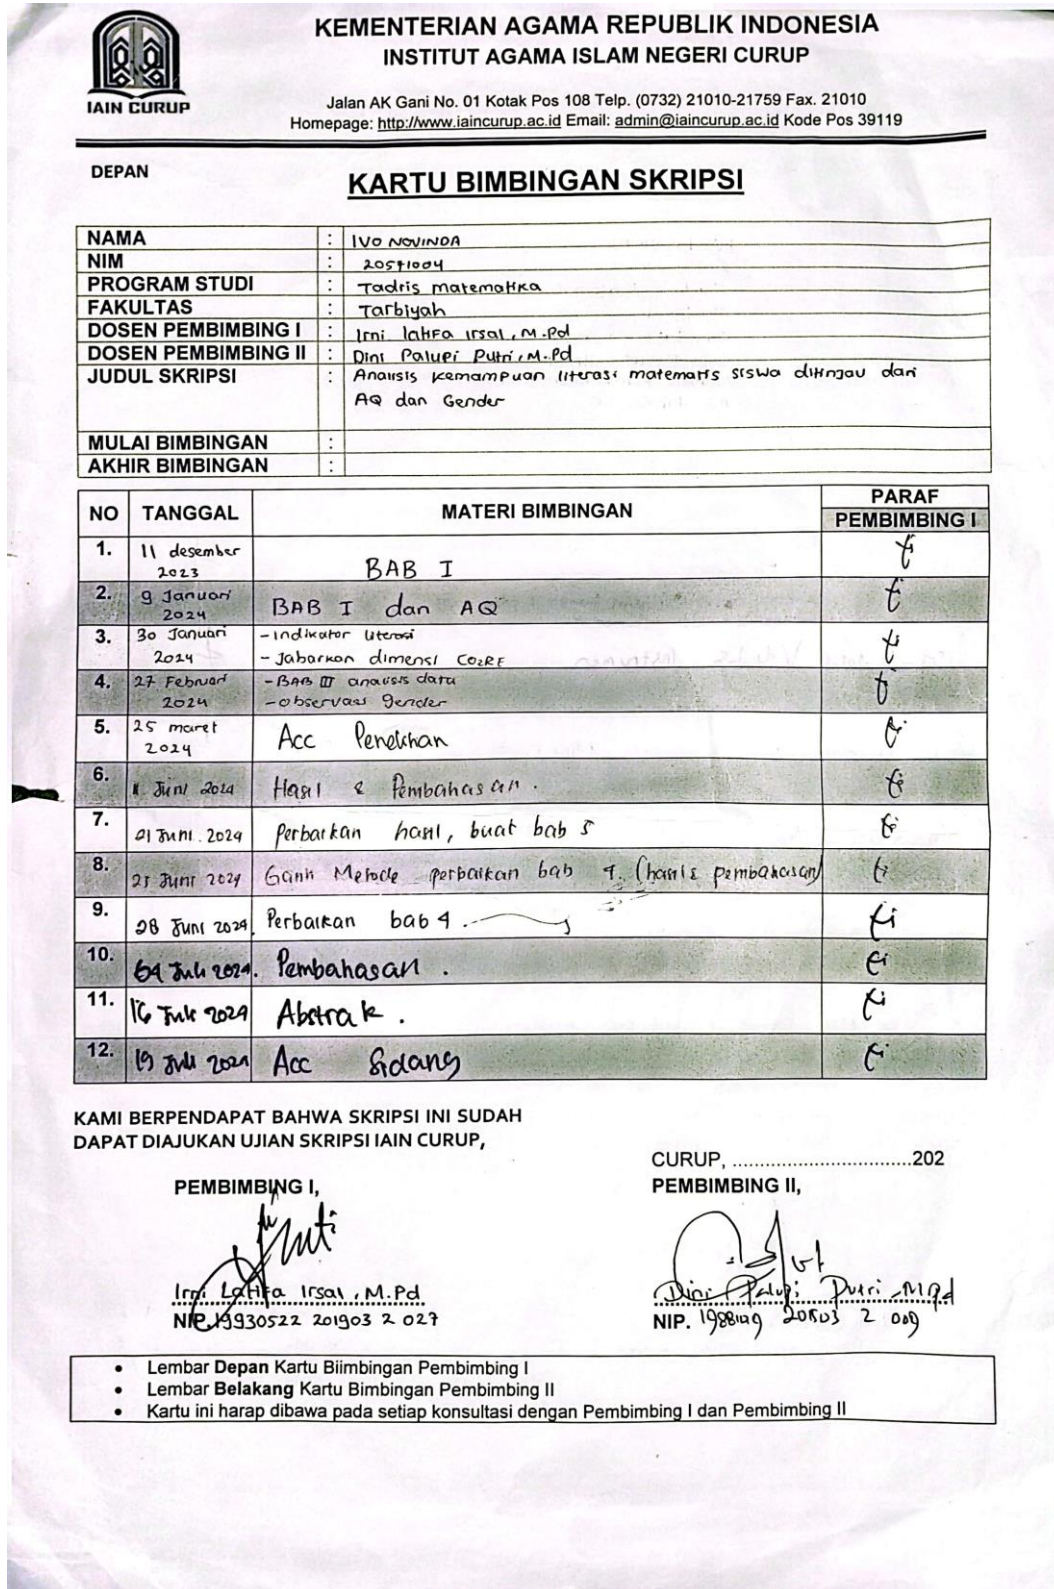 KEMENTERIAN AGAMA REPUBLIK INDONESIA
INSTITUT AGAMA ISLAM NEGERI CURUP
IAIN CURUP
Jalan AK Gani No. 01 Kotak Pos 108 Telp. (0732) 21010-21759 Fax. 21010
Homepage: http://www.iaincurup.ac.id Email: admin@iaincurup.ac.id Kode Pos 39119
DEPAN
KARTU BIMBINGAN SKRIPSI
NAMA : IVO NOVINDA
NIM : 20571004
PROGRAM STUDI : Tadris matematika
FAKULTAS : Tarbiyah
DOSEN PEMBIMBING I : Irni latifa Irsal, M.Pd
DOSEN PEMBIMBING II : Dini Palupi Putri, M.Pd
JUDUL SKRIPSI : Analisis kemampuan literasi matematis siswa ditinjau dari
AQ dan Gender
MULAI BIMBINGAN :
AKHIR BIMBINGAN :
NO TANGGAL MATERI BIMBINGAN PARAF
PEMBIMBING I
1. 11 desember
2023 BAB I
2. 9 Januari
2024 BAB I dan AQ
3. 30 Januari - Indikator literasi
2024 - Jabarkan dimensi CO2RE
4. 27 Februari - BAB III analisis data
2024 - observasi gender
5. 25 maret
2024 Acc Penelitian
6. Juni 2024 Hasil & Pembahasan.
7. 21 Juni. 2024 Perbaikan hasil, buat bab 5
8. 25 Juni 2024 Ganti Metode perbaikan bab 4. (hasil & pembahasan)
9. 28 Juni 2024. Perbaikan bab 4.
10. 04 Juli 2024. Pembahasan.
11. 16 Juli 2024 Abstrak.
12. 19 Juli 2024 Acc Sidang
KAMI BERPENDAPAT BAHWA SKRIPSI INI SUDAH
DAPAT DIAJUKAN UJIAN SKRIPSI IAIN CURUP,
CURUP, ................................202
PEMBIMBING I,
PEMBIMBING II,
Irni Latifa Irsal, M.Pd
NIP. 19930522 201903 2 027
Dini Palupi Putri, M.Pd
NIP. 2 009
• Lembar Depan Kartu Biimbingan Pembimbing I
• Lembar Belakang Kartu Bimbingan Pembimbing II
• Kartu ini harap dibawa pada setiap konsultasi dengan Pembimbing I dan Pembimbing II